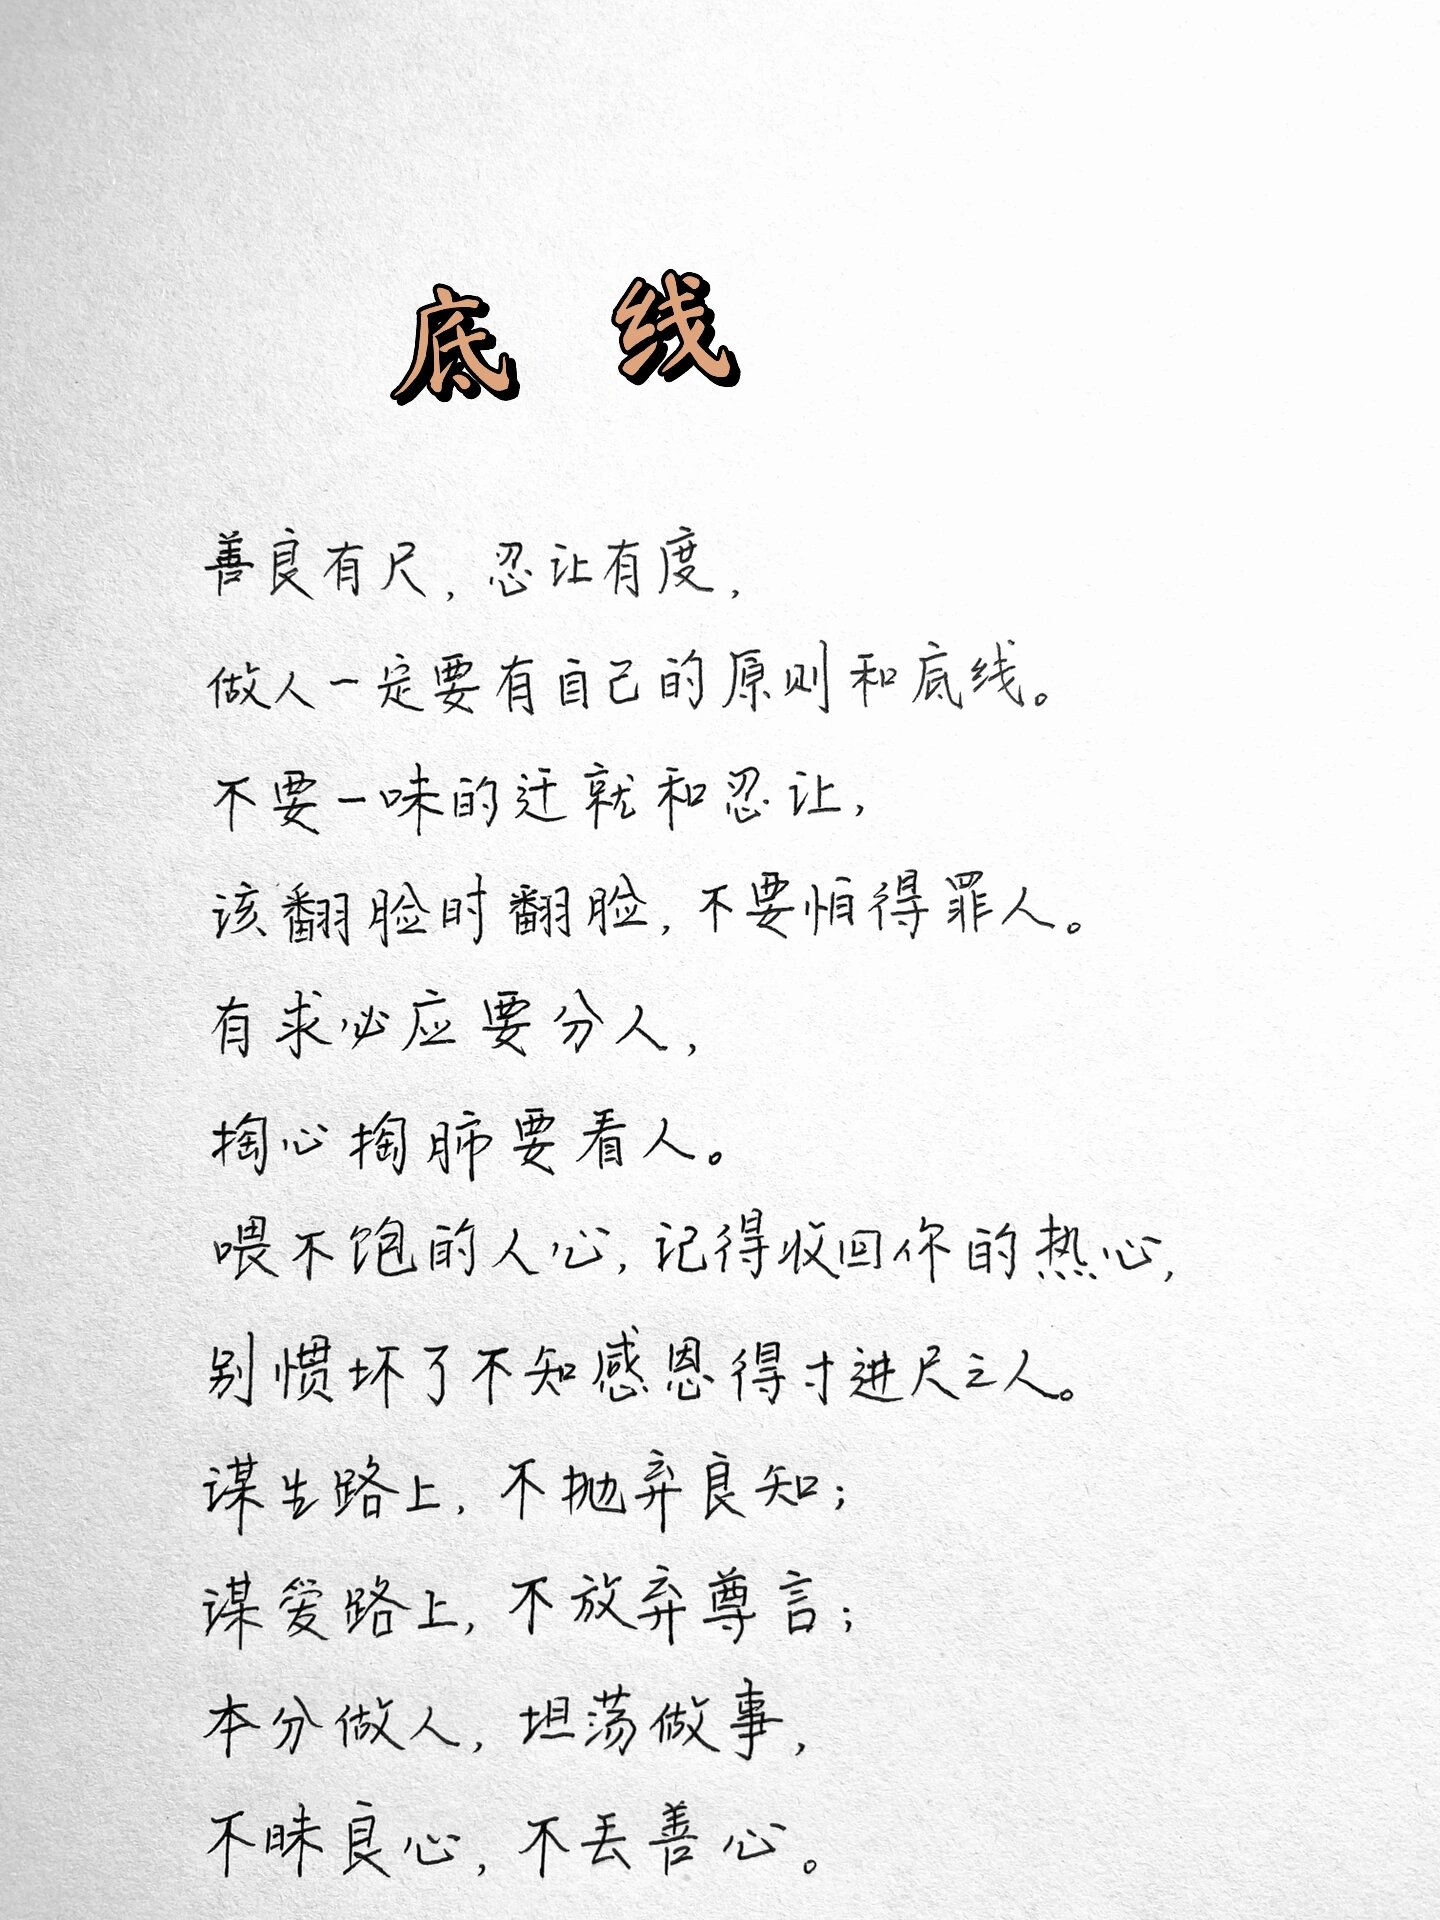 底 线
善良有尺，忍让有度，
做人一定要有自己的原则和底线。
不要一味的迁就和忍让，
该翻脸时翻脸，不要怕得罪人。
有求必应要分人，
掏心掏肺要看人。
喂不饱的人心，记得收回你的热心，
别惯坏了不知感恩得寸进尺之人。
谋生路上，不抛弃良知；
谋爱路上，不放弃尊言；
本分做人，坦荡做事，
不昧良心，不丢善心。